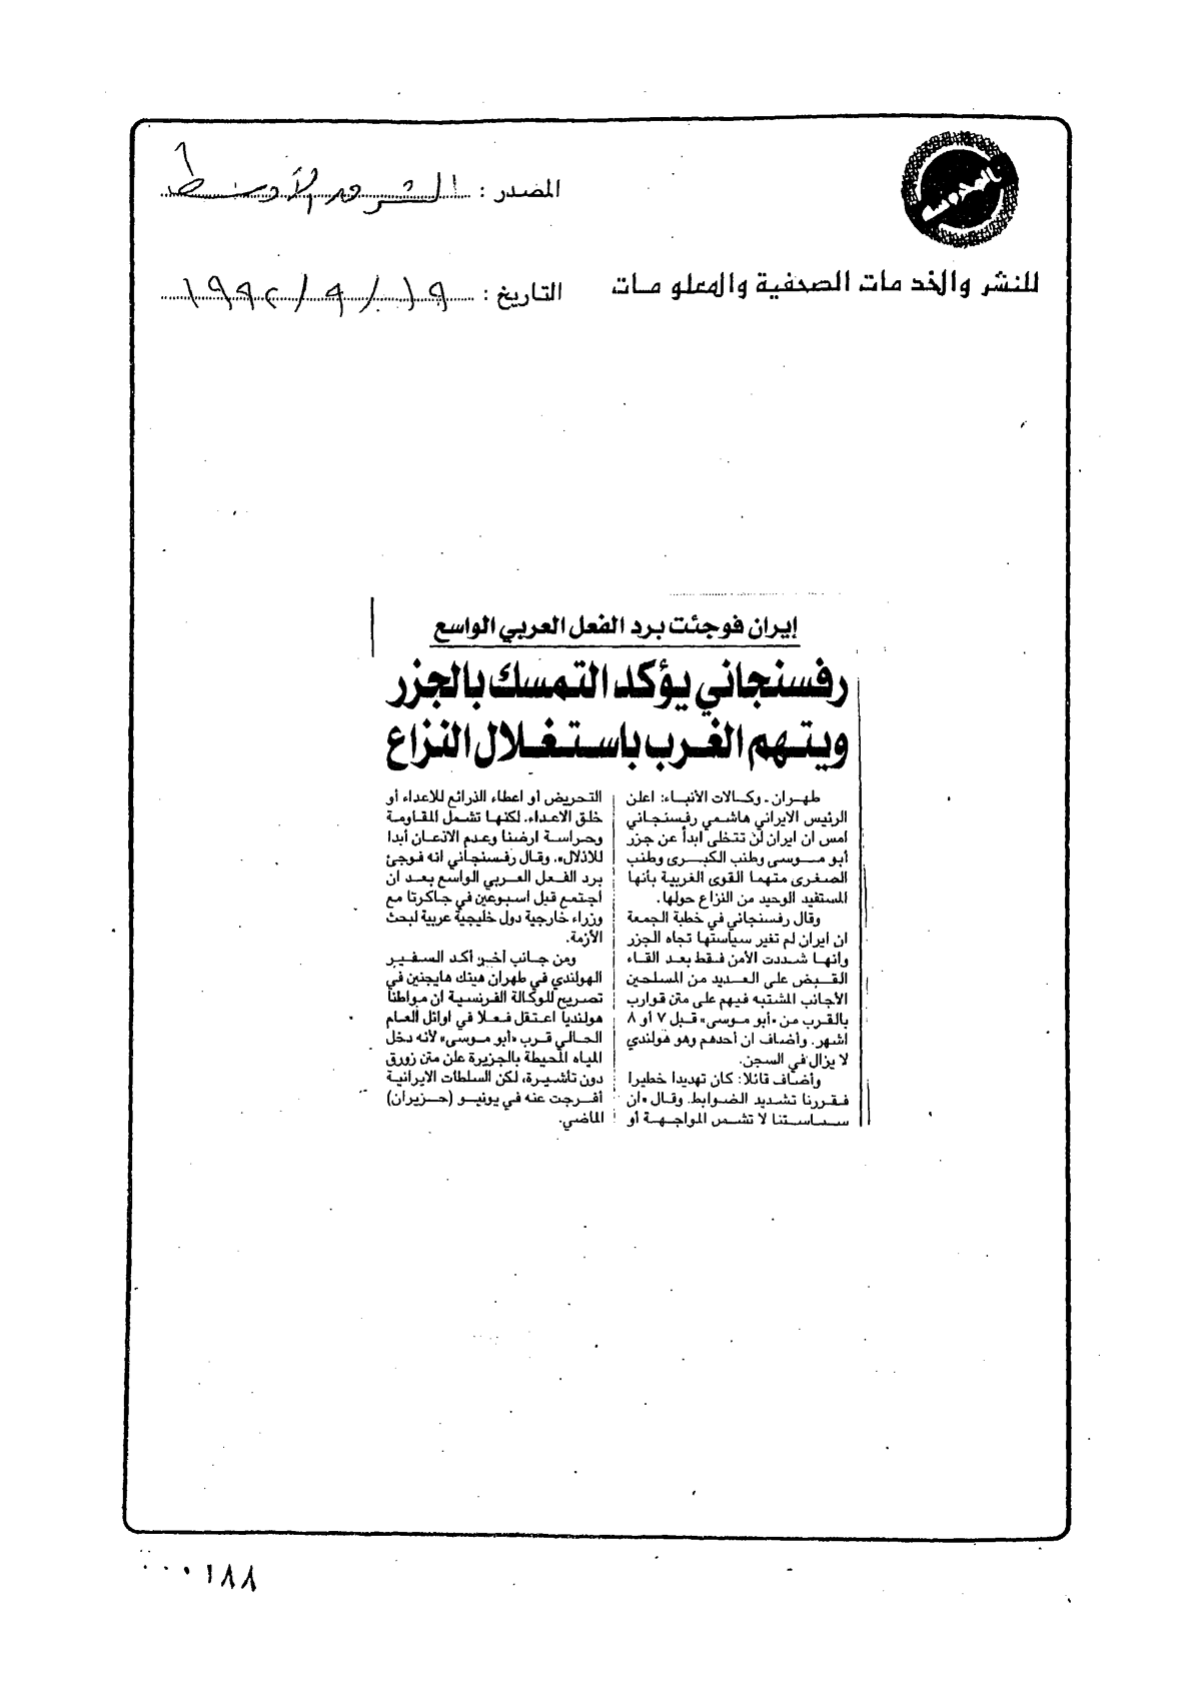 المحروسة
المصدر : الشرق الأوسط
للنشر والخدمات الصحفية والمعلومات
التاريخ : ١٩ / ٩ / ١٩٩٢
إيران فوجئت برد الفعل العربي الواسع
رفسنجاني يؤكد التمسك بالجزر
ويتهم الغرب باستغلال النزاع
طهران ـ وكالات الأنباء: اعلن
الرئيس الايراني هاشمي رفسنجاني
امس ان ايران لن تتخلى ابدأ عن جزر
أبو موسى وطنب الكبرى وطنب
الصغرى متهما القوى الغربية بأنها
المستفيد الوحيد من النزاع حولها.
وقال رفسنجاني في خطبة الجمعة
ان ايران لم تغير سياستها تجاه الجزر
وانها شددت الأمن فقط بعد القاء
القبض على العديد من المسلحين
الأجانب المشتبه فيهم على متن قوارب
بالقرب من «أبو موسى» قبل ٧ أو ٨
اشهر. وأضاف ان أحدهم وهو هولندي
لا يزال في السجن.
وأضاف قائلا: كان تهديدا خطيرا
فقررنا تشديد الضوابط. وقال «ان
سياستنا لا تشمل المواجهة أو
التحريض أو اعطاء الذرائع للاعداء أو
خلق الاعداء. لكنها تشمل المقاومة
وحراسة ارضنا وعدم الاذعان أبدا
للاذلال». وقال رفسنجاني انه فوجئ
برد الفعل العربي الواسع بعد ان
اجتمع قبل اسبوعين في جاكرتا مع
وزراء خارجية دول خليجية عربية لبحث
الأزمة.
ومن جانب أخر أكد السفير
الهولندي في طهران هينك هايجنين في
تصريح للوكالة الفرنسية ان مواطنا
هولنديا اعتقل فعلا في اوائل العام
الحالي قرب «أبو موسى» لأنه دخل
المياه المحيطة بالجزيرة على متن زورق
دون تأشيرة، لكن السلطات الايرانية
أفرجت عنه في يونيو (حزيران)
الماضي.
٠٠٠١٨٨